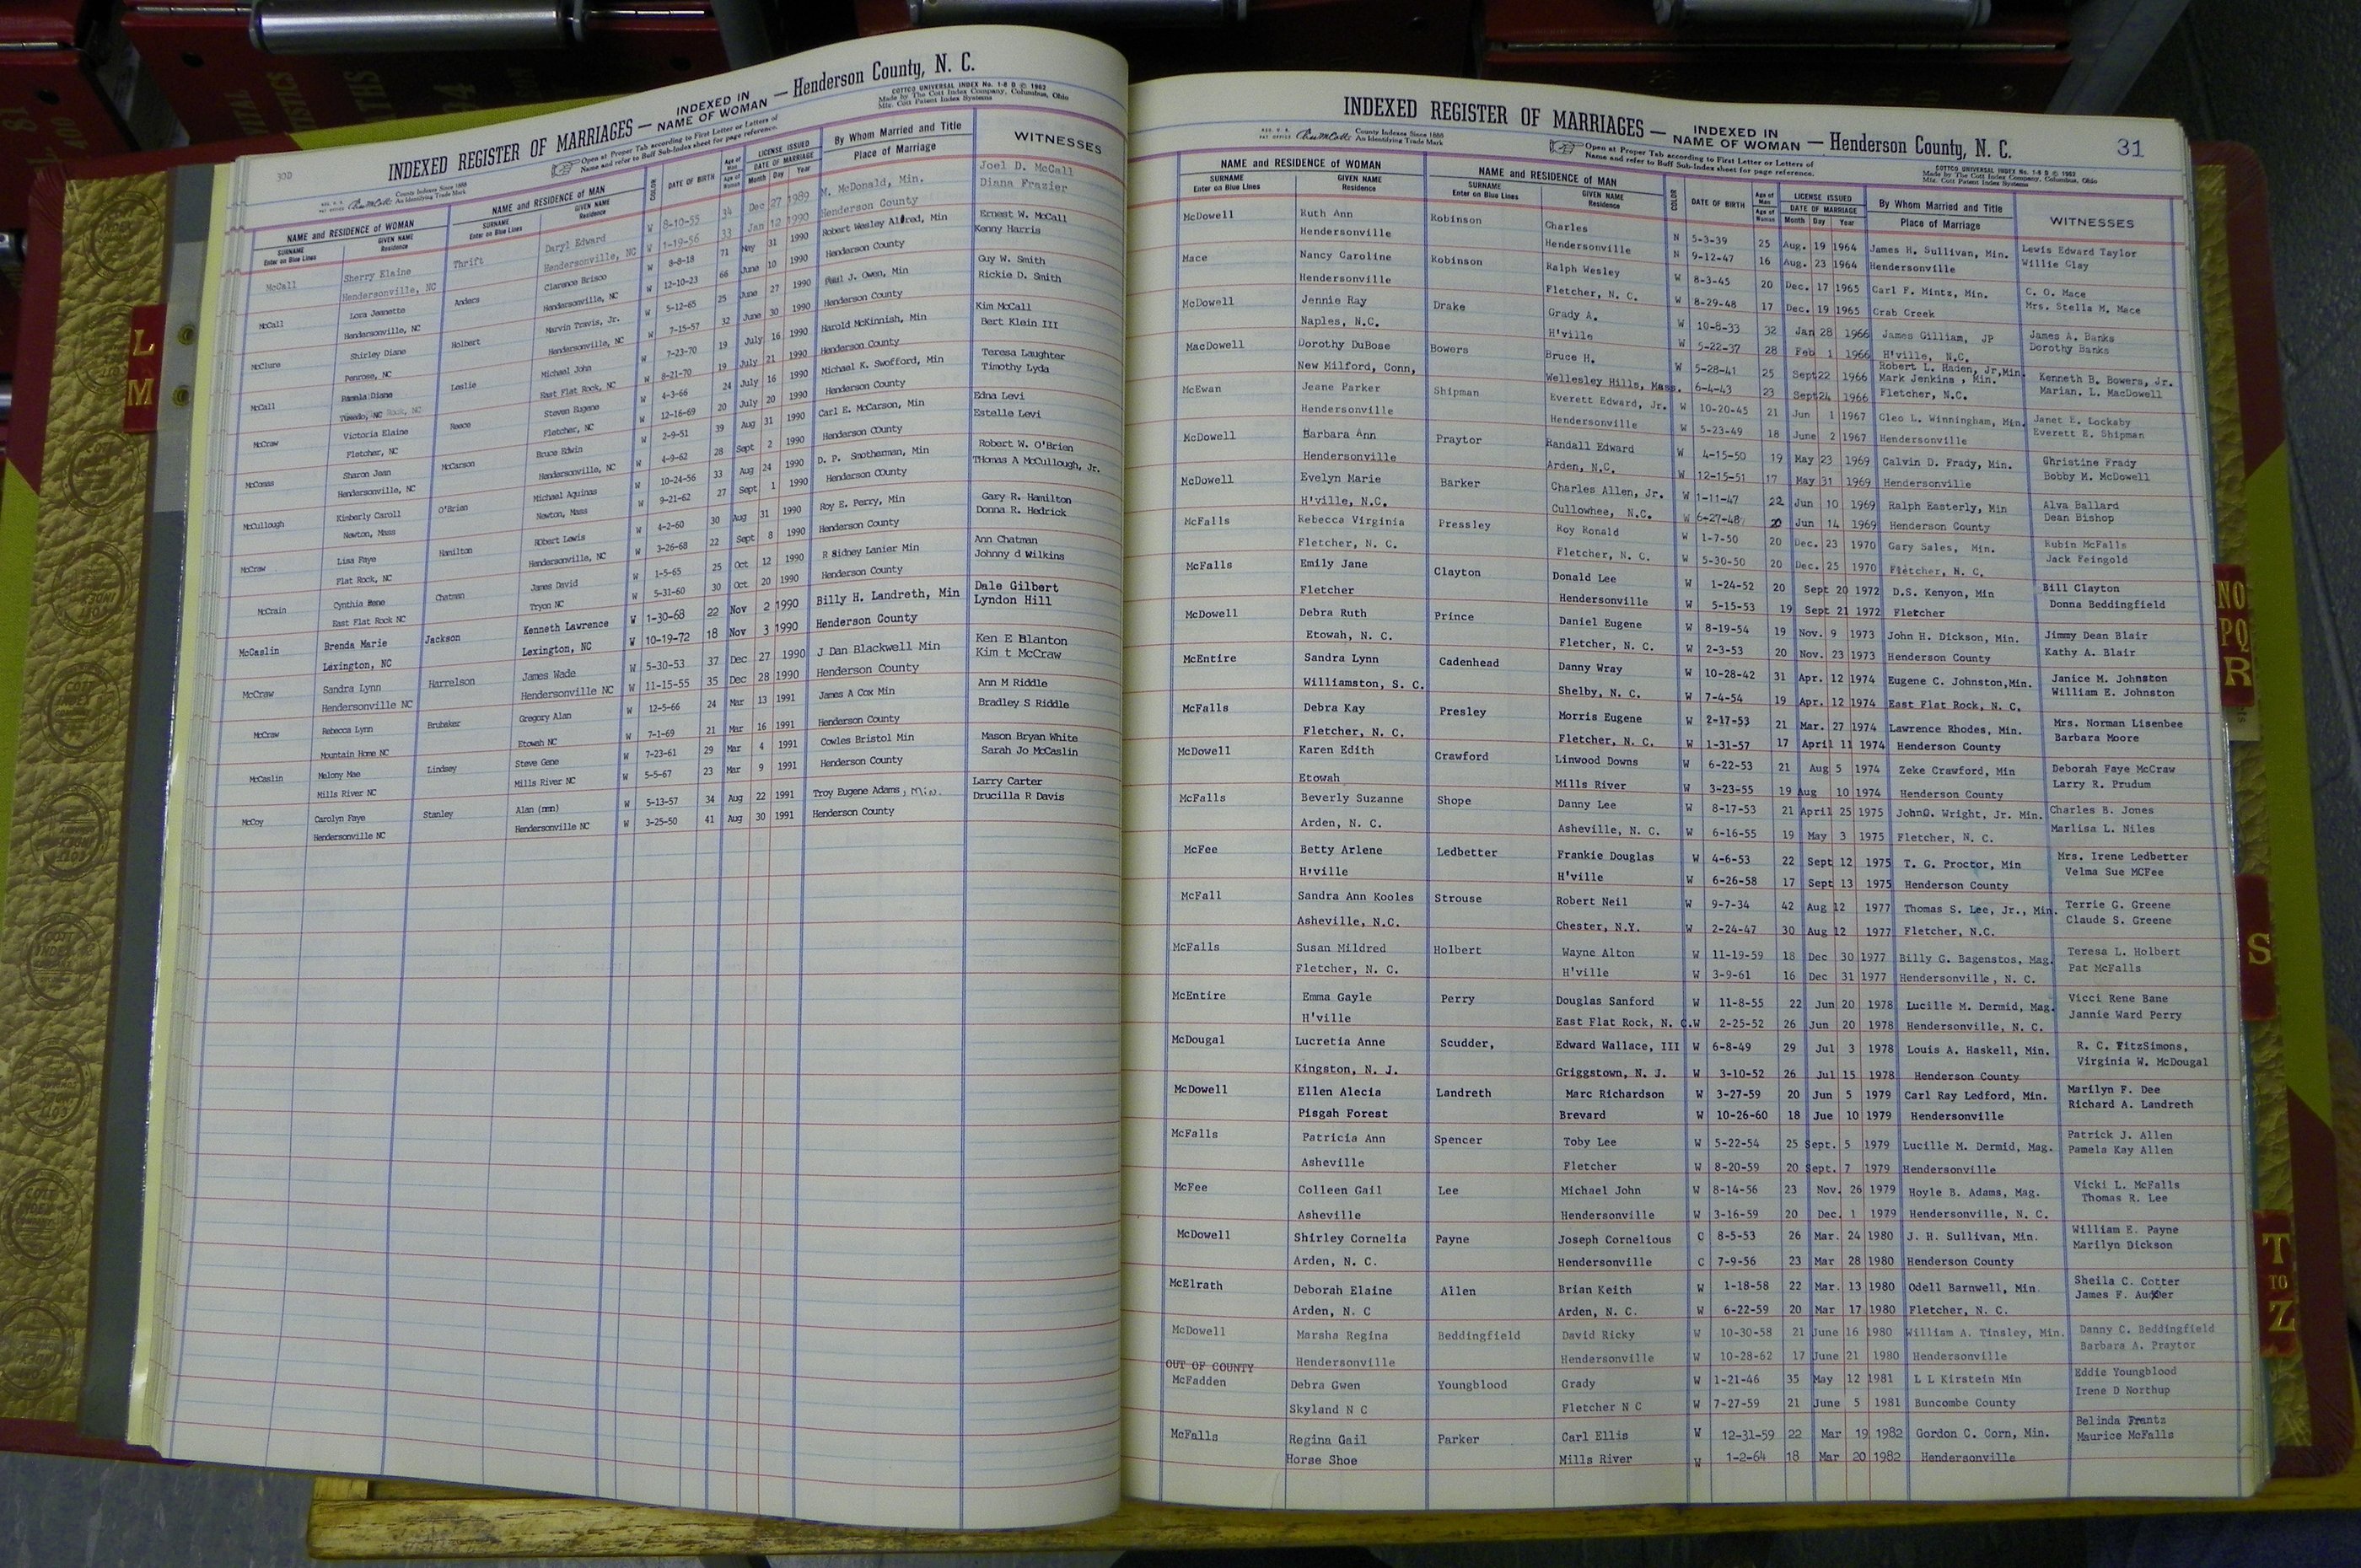 30D
INDEXED REGISTER OF MARRIAGES — INDEXED IN NAME OF WOMAN — Henderson County, N. C.
COTTCO UNIVERSAL INDEX No. 1-8 D © 1962
Made by The Cott Index Company, Columbus, Ohio
Mfg. Cott Patent Index Systems
County Indexes Since 1888
An Identifying Trade Mark
Open at Proper Tab according to First Letter or Letters of
Name and refer to Buff Sub-Index sheet for page reference.
NAME and RESIDENCE OF WOMAN NAME and RESIDENCE OF MAN COLOR DATE OF BIRTH Age of Man LICENSE ISSUED By Whom Married and Title WITNESSES
SURNAME Enter on Blue Lines GIVEN NAME Residence SURNAME Enter on Blue Lines GIVEN NAME Residence Age of Woman DATE OF MARRIAGE Month Day Year Place of Marriage
McCall Sherry Elaine Thrift Daryl Edward W 8-10-55 34 Dec 27 1989 M. McDonald, Min. Joel D. McCall
Hendersonville, NC Hendersonville, NC W 1-19-56 33 Jan 12 1990 Henderson County Diana Frazier
McCall Lora Jeanette Anders Clarence Brisco W 8-8-18 71 May 31 1990 Robert Wesley Allred, Min Ernest W. McCall
Hendersonville, NC Hendersonville, NC W 12-10-23 66 June 10 1990 Henderson County Kenny Harris
McClure Shirley Diane Holbert Marvin Travis, Jr. W 5-12-65 25 June 27 1990 Paul J. Owen, Min Guy W. Smith
Penrose, NC Hendersonville, NC W 7-15-57 32 June 30 1990 Henderson County Rickie D. Smith
McCall Pamela Diane Leslie Michael John W 7-23-70 19 July 16 1990 Harold McKinnish, Min Kim McCall
Tuxedo, NC East Flat Rock, NC W 8-21-70 19 July 21 1990 Henderson County Bert Klein III
McCraw Victoria Elaine Reece Steven Eugene W 4-3-66 24 July 16 1990 Michael K. Swofford, Min Teresa Laughter
Fletcher, NC Fletcher, NC W 12-16-69 20 July 20 1990 Henderson County Timothy Lyda
McComas Sharon Jean McCarson Bruce Edwin W 2-9-51 39 Aug 31 1990 Carl E. McCarson, Min Edna Levi
Hendersonville, NC Hendersonville, NC W 4-9-62 28 Sept 2 1990 Henderson COunty Estelle Levi
McCullough Kimberly Caroll O'Brien Michael Aquinas W 10-24-56 33 Aug 24 1990 D. P. Smotherman, Min Robert W. O'Brien
Newton, Mass Newton, Mass W 9-21-62 27 Sept 1 1990 Henderson COunty THomas A McCullough, Jr.
McCraw Lisa Faye Hamilton RObert Lewis W 4-2-60 30 Aug 31 1990 Roy E. Perry, Min Gary R. Hamilton
Flat Rock, NC Hendersonville, NC W 3-26-68 22 Sept 8 1990 Henderson County Donna R. Hedrick
McCrain Cynthia Rene Chatman James David W 1-5-65 25 Oct 12 1990 R Sidney Lanier Min Ann Chatman
East Flat Rock NC Tryon NC W 5-31-60 30 Oct 20 1990 Henderson County Johnny d Wilkins
McCaslin Brenda Marie Jackson Kenneth Lawrence W 1-30-68 22 Nov 2 1990 Billy H. Landreth, Min Dale Gilbert
Lexington, NC Lexington, NC W 10-19-72 18 Nov 3 1990 Henderson County Lyndon Hill
McCraw Sandra Lynn Harrelson James Wade W 5-30-53 37 Dec 27 1990 J Dan Blackwell Min Ken E Blanton
Hendersonville NC Hendersonville NC W 11-15-55 35 Dec 28 1990 Henderson County Kim t McCraw
McCraw Rebecca Lynn Brubaker Gregory Alan W 12-5-66 24 Mar 13 1991 James A Cox Min Ann M Riddle
Mountain Home NC Etowah NC W 7-1-69 21 Mar 16 1991 Henderson County Bradley S Riddle
McCaslin Melony Mae Lindsey Steve Gene W 7-23-61 29 Mar 4 1991 Cowles Bristol Min Mason Bryan White
Mills River NC Mills River NC W 5-5-67 23 Mar 9 1991 Henderson County Sarah Jo McCaslin
McCoy Carolyn Faye Stanley Alan (nmn) W 5-13-57 34 Aug 22 1991 Troy Eugene Adams, Min. Larry Carter
Hendersonville NC Hendersonville NC W 3-25-50 41 Aug 30 1991 Henderson County Drucilla R Davis
INDEXED REGISTER OF MARRIAGES — INDEXED IN NAME OF WOMAN — Henderson County, N. C. 31
County Indexes Since 1888
An Identifying Trade Mark
Open at Proper Tab according to First Letter or Letters of
Name and refer to Buff Sub-Index sheet for page reference.
COTTCO UNIVERSAL INDEX No. 1-8 D © 1962
Made by The Cott Index Company, Columbus, Ohio
Mfg. Cott Patent Index Systems
NAME and RESIDENCE OF WOMAN NAME and RESIDENCE OF MAN COLOR DATE OF BIRTH Age of Man LICENSE ISSUED By Whom Married and Title WITNESSES
SURNAME Enter on Blue Lines GIVEN NAME Residence SURNAME Enter on Blue Lines GIVEN NAME Residence Age of Woman DATE OF MARRIAGE Month Day Year Place of Marriage
McDowell Ruth Ann Robinson Charles N 5-3-39 25 Aug. 19 1964 James H. Sullivan, Min. Lewis Edward Taylor
Hendersonville Hendersonville N 9-12-47 16 Aug. 23 1964 Hendersonville Willie Clay
Mace Nancy Caroline Robinson Ralph Wesley W 8-3-45 20 Dec. 17 1965 Carl F. Mintz, Min. C. O. Mace
Hendersonville Fletcher, N. C. W 8-29-48 17 Dec. 19 1965 Crab Creek Mrs. Stella M. Mace
McDowell Jennie Ray Drake Grady A. W 10-8-33 32 Jan 28 1966 James Gilliam, JP James A. Banks
Naples, N.C. H'ville W 5-22-37 28 Feb 1 1966 H'ville, N.C. Dorothy Banks
MacDowell Dorothy DuBose Bowers Bruce H. W 5-28-41 25 Sept 22 1966 Robert L. Haden, Jr,Min. Mark Jenkins, Min. Kenneth B. Bowers, Jr.
New Milford, Conn, Wellesley Hills, Mass. 6-4-43 23 Sept 24 1966 Fletcher, N.C. Marian. L. MacDowell
McEwan Jeane Parker Shipman Everett Edward, Jr. W 10-20-45 21 Jun 1 1967 Cleo L. Winningham, Min. Janet E. Lockaby
Hendersonville Hendersonville W 5-23-49 18 June 2 1967 Hendersonville Everett E. Shipman
McDowell Barbara Ann Praytor Randall Edward W 4-15-50 19 May 23 1969 Calvin D. Frady, Min. Christine Frady
Hendersonville Arden, N.C. W 12-15-51 17 May 31 1969 Hendersonville Bobby M. McDowell
McDowell Evelyn Marie Barker Charles Allen, Jr. W 1-11-47 22 Jun 10 1969 Ralph Easterly, Min Alva Ballard
H'ville, N.C. Cullowhee, N.C. W 6-27-48 20 Jun 14 1969 Henderson County Dean Bishop
McFalls Rebecca Virginia Pressley Roy Ronald W 1-7-50 20 Dec. 23 1970 Gary Sales, Min. Rubin McFalls
Fletcher, N. C. Fletcher, N. C. W 5-30-50 20 Dec. 25 1970 Fletcher, N. C. Jack Feingold
McFalls Emily Jane Clayton Donald Lee W 1-24-52 20 Sept 20 1972 D.S. Kenyon, Min Bill Clayton
Fletcher Hendersonville W 5-15-53 19 Sept 21 1972 Fletcher Donna Beddingfield
McDowell Debra Ruth Prince Daniel Eugene W 8-19-54 19 Nov. 9 1973 John H. Dickson, Min. Jimmy Dean Blair
Etowah, N. C. Fletcher, N. C. W 2-3-53 20 Nov. 23 1973 Henderson County Kathy A. Blair
McEntire Sandra Lynn Cadenhead Danny Wray W 10-28-42 31 Apr. 12 1974 Eugene C. Johnston,Min. Janice M. Johnston
Williamston, S. C. Shelby, N. C. W 7-4-54 19 Apr. 12 1974 East Flat Rock, N. C. William E. Johnston
McFalls Debra Kay Presley Morris Eugene W 2-17-53 21 Mar. 27 1974 Lawrence Rhodes, Min. Mrs. Norman Lisenbee
Fletcher, N. C. Fletcher, N. C. W 1-31-57 17 April 11 1974 Henderson County Barbara Moore
McDowell Karen Edith Crawford Linwood Downs W 6-22-53 21 Aug 5 1974 Zeke Crawford, Min Deborah Faye McCraw
Etowah Mills River W 3-23-55 19 Aug 10 1974 Henderson County Larry R. Prudum
McFalls Beverly Suzanne Shope Danny Lee W 8-17-53 21 April 25 1975 JohnO. Wright, Jr. Min. Charles B. Jones
Arden, N. C. Asheville, N. C. W 6-16-55 19 May 3 1975 Fletcher, N. C. Marlisa L. Niles
McFee Betty Arlene Ledbetter Frankie Douglas W 4-6-53 22 Sept 12 1975 T. G. Proctor, Min Mrs. Irene Ledbetter
H'ville H'ville W 6-26-58 17 Sept 13 1975 Henderson County Velma Sue MCFee
McFall Sandra Ann Kooles Strouse Robert Neil W 9-7-34 42 Aug 12 1977 Thomas S. Lee, Jr., Min. Terrie G. Greene
Asheville, N.C. Chester, N.Y. W 2-24-47 30 Aug 12 1977 Fletcher, N.C. Claude S. Greene
McFalls Susan Mildred Holbert Wayne Alton W 11-19-59 18 Dec 30 1977 Billy G. Bagenstos, Mag. Teresa L. Holbert
Fletcher, N. C. H'ville W 3-9-61 16 Dec 31 1977 Hendersonville, N. C. Pat McFalls
McEntire Emma Gayle Perry Douglas Sanford W 11-8-55 22 Jun 20 1978 Lucille M. Dermid, Mag. Vicci Rene Bane
H'ville East Flat Rock, N. C. W 2-25-52 26 Jun 20 1978 Hendersonville, N. C. Jannie Ward Perry
McDougal Lucretia Anne Scudder, Edward Wallace, III W 6-8-49 29 Jul 3 1978 Louis A. Haskell, Min. R. C. FitzSimons,
Kingston, N. J. Griggstown, N. J. W 3-10-52 26 Jul 15 1978 Henderson County Virginia W. McDougal
McDowell Ellen Alecia Landreth Marc Richardson W 3-27-59 20 Jun 5 1979 Carl Ray Ledford, Min. Marilyn F. Dee
Pisgah Forest Brevard W 10-26-60 18 Jue 10 1979 Hendersonville Richard A. Landreth
McFalls Patricia Ann Spencer Toby Lee W 5-22-54 25 Sept. 5 1979 Lucille M. Dermid, Mag. Patrick J. Allen
Asheville Fletcher W 8-20-59 20 Sept. 7 1979 Hendersonville Pamela Kay Allen
McFee Colleen Gail Lee Michael John W 8-14-56 23 Nov. 26 1979 Hoyle B. Adams, Mag. Vicki L. McFalls
Asheville Hendersonville W 3-16-59 20 Dec. 1 1979 Hendersonville, N. C. Thomas R. Lee
McDowell Shirley Cornelia Payne Joseph Cornelious C 8-5-53 26 Mar. 24 1980 J. H. Sullivan, Min. William E. Payne
Arden, N. C. Hendersonville C 7-9-56 23 Mar 28 1980 Henderson County Marilyn Dickson
McElrath Deborah Elaine Allen Brian Keith W 1-18-58 22 Mar. 13 1980 Odell Barnwell, Min. Sheila C. Cotter
Arden, N. C Arden, N. C. W 6-22-59 20 Mar 17 1980 Fletcher, N. C. James F.
McDowell Marsha Regina Beddingfield David Ricky W 10-30-58 21 June 16 1980 William A. Tinsley, Min. Danny C. Beddingfield
Hendersonville Hendersonville W 10-28-62 17 June 21 1980 Hendersonville Barbara A. Praytor
OUT OF COUNTY
McFadden Debra Gwen Youngblood Grady W 1-21-46 35 May 12 1981 L L Kirstein Min Eddie Youngblood
Skyland N C Fletcher N C W 7-27-59 21 June 5 1981 Buncombe County Irene D Northup
McFalls Regina Gail Parker Carl Ellis W 12-31-59 22 Mar 19 1982 Gordon C. Corn, Min. Belinda Frantz
Horse Shoe Mills River W 1-2-64 18 Mar 20 1982 Hendersonville Maurice McFalls
L
M
NO
PQ
R
S
T
TO
Z